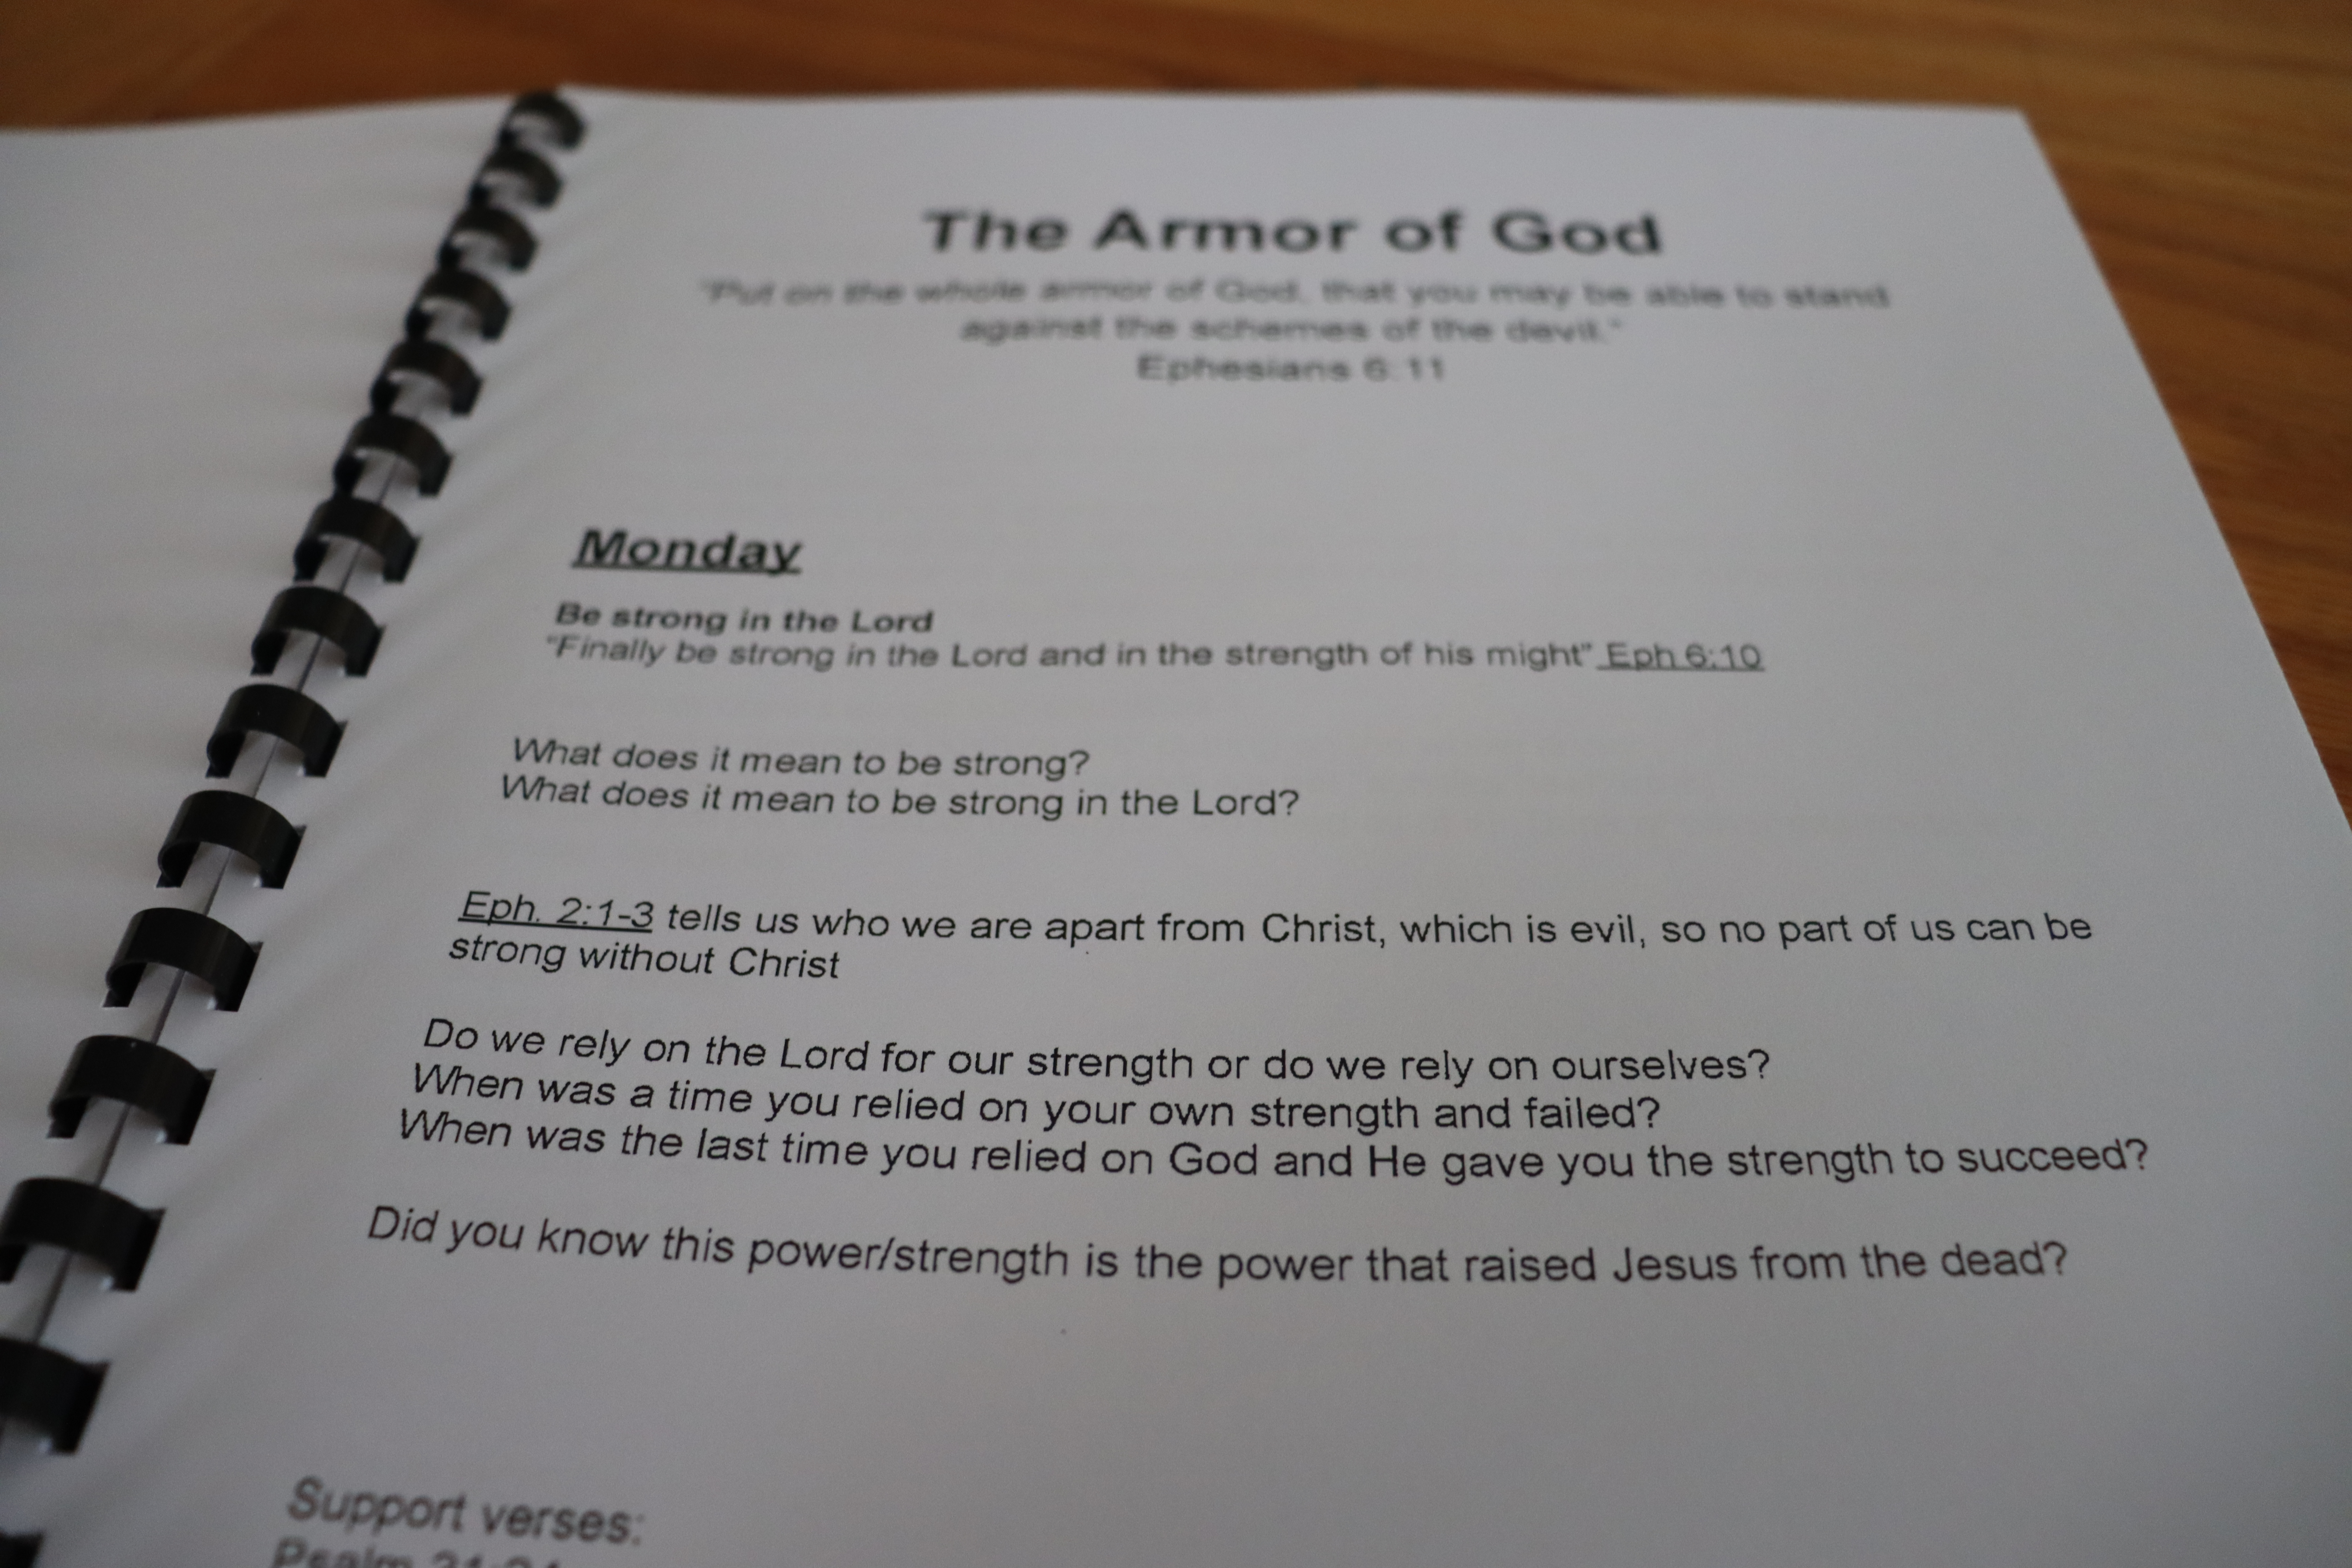 The Armor of God
"Put on the whole armor of God, that you may be able to stand
against the schemes of the devil."
Ephesians 6:11
Monday
Be strong in the Lord
"Finally be strong in the Lord and in the strength of his might" Eph 6:10
What does it mean to be strong?
What does it mean to be strong in the Lord?
Eph. 2:1-3 tells us who we are apart from Christ, which is evil, so no part of us can be
strong without Christ
Do we rely on the Lord for our strength or do we rely on ourselves?
When was a time you relied on your own strength and failed?
When was the last time you relied on God and He gave you the strength to succeed?
Did you know this power/strength is the power that raised Jesus from the dead?
Support verses:
Psalm